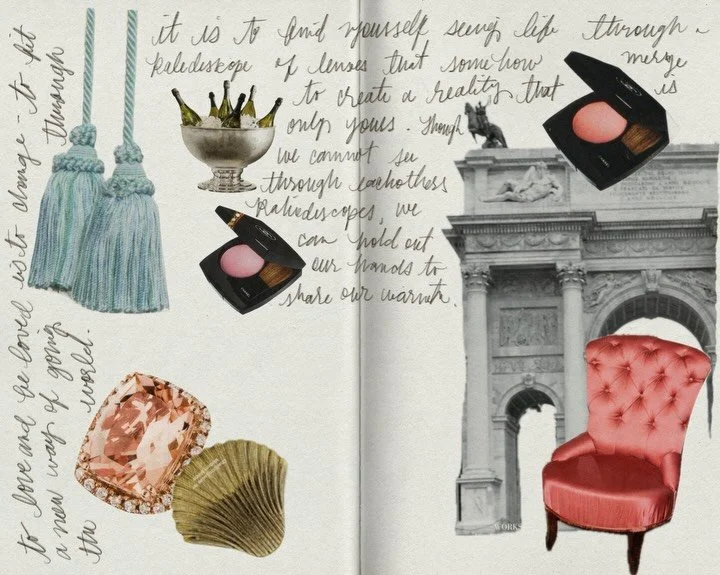 it is to find yourself seeing life through a
kaledeskope of lenses that somehow merge
to create a reality that is
only yours. Though
we cannot see
through eachothers
kaliedescopes, we
can hold out
our hands to
share our warmth.
to love and be loved is to change - to fit
a new way of going through
the world.
CHANEL
CHANEL
WORKS